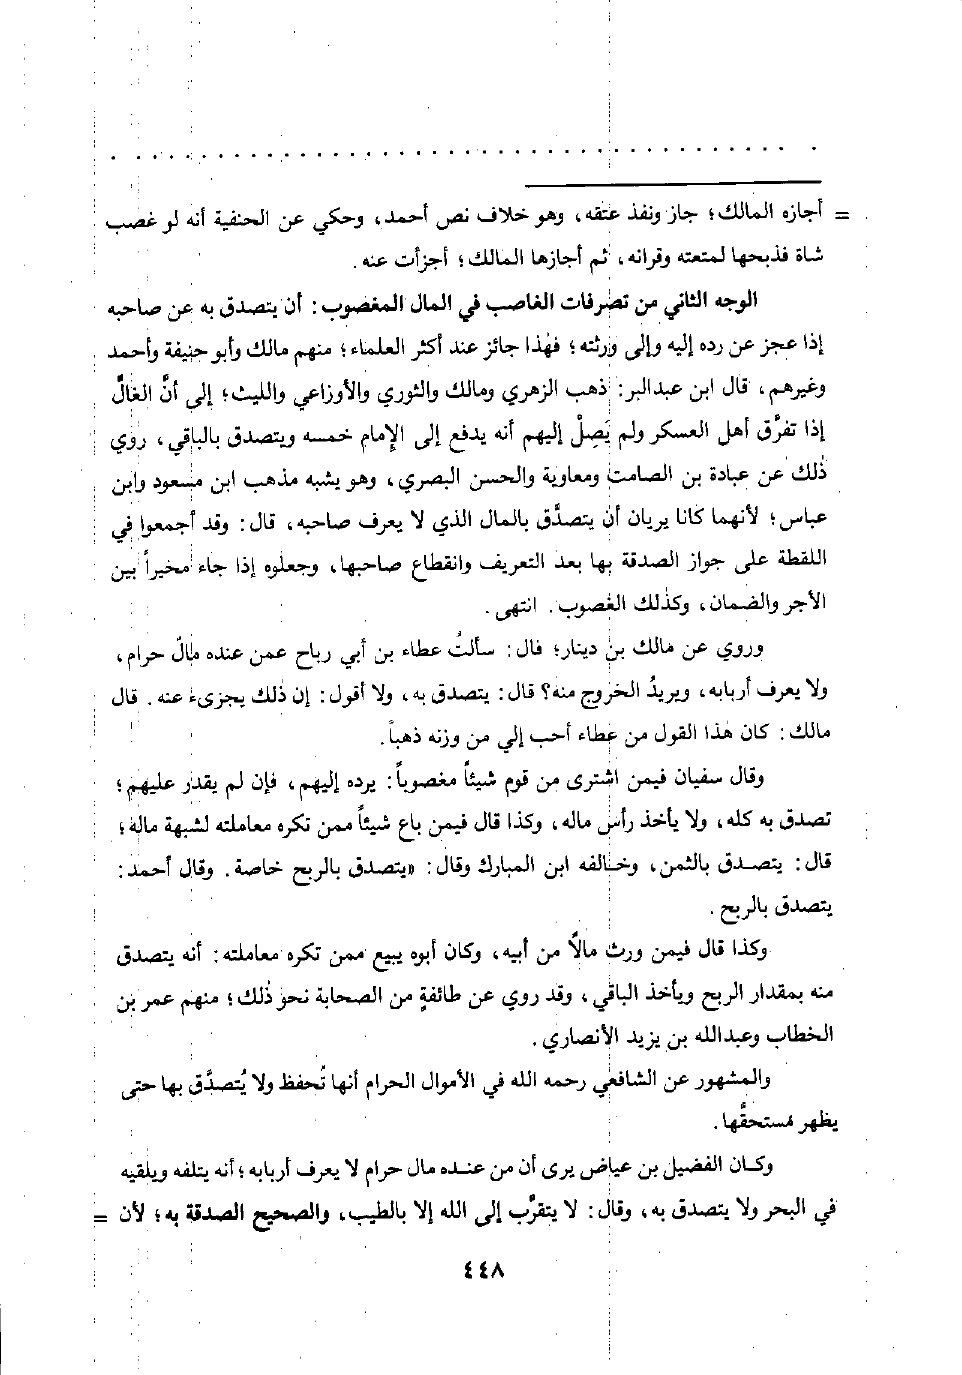 = أجازه المالك؛ جاز ونفذ عتقه، وهو خلاف نص أحمد، وحكي عن الحنفية أنه لو غصب
شاة فذبحها لمتعته وقرانه، ثم أجازها المالك؛ أجزأت عنه.
الوجه الثاني من تصرفات الغاصب في المال المغصوب: أن يتصدق به عن صاحبه
إذا عجز عن رده إليه وإلى ورثته؛ فهٰذا جائز عند أكثر العلماء؛ منهم مالك وأبو حنيفة وأحمد
وغيرهم، قال ابن عبدالبر: ذهب الزهري ومالك والثوري والأوزاعي والليث؛ إلى أنَّ الغالَّ
إذا تفرَّق أهل العسكر ولم يَصِلْ إليهم أنه يدفع إلى الإمام خمسه ويتصدق بالباقي، روي
ذٰلك عن عبادة بن الصامت ومعاوية والحسن البصري، وهو يشبه مذهب ابن مسعود وابن
عباس؛ لأنهما كانا يريان أن يتصدَّق بالمال الذي لا يعرف صاحبه، قال: وقد أجمعوا في
اللقطة على جواز الصدقة بها بعد التعريف وانقطاع صاحبها، وجعلوه إذا جاء مخيراً بين
الأجر والضمان، وكذٰلك الغصوب. انتهى.
وروي عن مالك بن دينار؛ قال: سألتُ عطاء بن أبي رباح عمن عنده مالٌ حرام،
ولا يعرف أربابه، ويريدُ الخروج منه؟ قال: يتصدق به، ولا أقول: إن ذٰلك يجزىء عنه. قال
مالك: كان هٰذا القول من عطاء أحب إلي من وزنه ذهباً.
وقال سفيان فيمن اشترى من قوم شيئاً مغصوباً: يرده إليهم، فإن لم يقدر عليهم؛
تصدق به كله، ولا يأخذ رأس ماله، وكذا قال فيمن باع شيئاً ممن تكره معاملته لشبهة ماله؛
قال: يتصدق بالثمن، وخالفه ابن المبارك وقال: «يتصدق بالربح خاصة. وقال أحمد:
يتصدق بالربح.
وكذا قال فيمن ورث مالاً من أبيه، وكان أبوه يبيع ممن تكره معاملته: أنه يتصدق
منه بمقدار الربح ويأخذ الباقي، وقد روي عن طائفةٍ من الصحابة نحو ذٰلك؛ منهم عمر بن
الخطاب وعبدالله بن يزيد الأنصاري.
والمشهور عن الشافعي رحمه الله في الأموال الحرام أنها تُحفظ ولا يُتصدَّق بها حتى
يظهر مُستحقُّها.
وكان الفضيل بن عياض يرى أن من عنده مال حرام لا يعرف أربابه؛ أنه يتلفه ويلقيه
في البحر ولا يتصدق به، وقال: لا يتقرَّب إلى الله إلا بالطيب، والصحيح الصدقة به؛ لأن =
٤٤٨